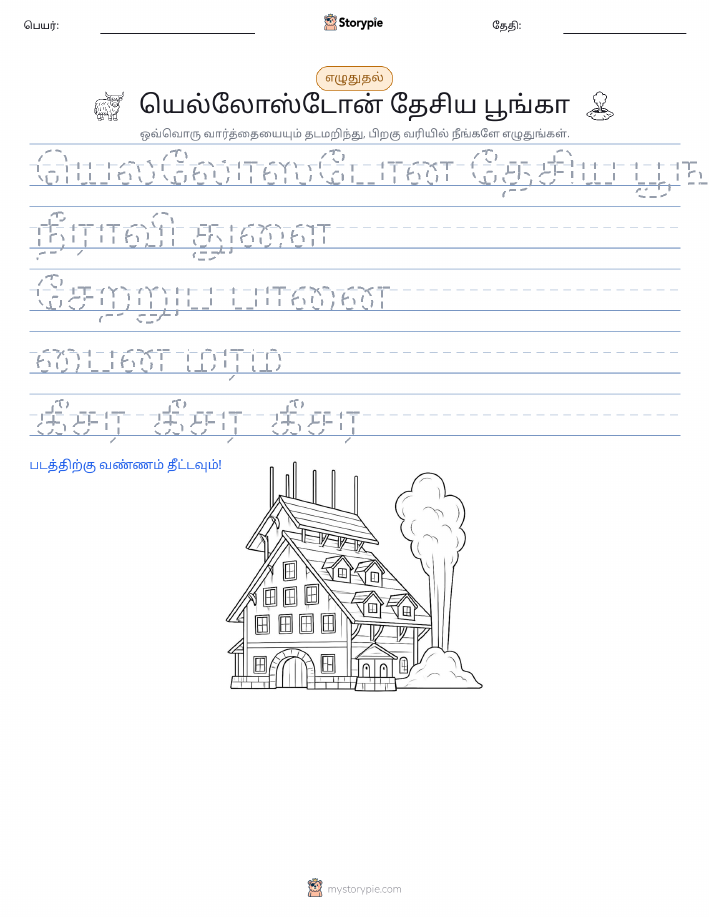 பெயர்:
Storypie
தேதி:
எழுதுதல்
யெல்லோஸ்டோன் தேசிய பூங்கா
ஒவ்வொரு வார்த்தையையும் தடமறிந்து, பிறகு வரியில் நீங்களே எழுதுங்கள்.
யெல்லோஸ்டோன் தேசிய பூங்
நீராவி துளை
சேற்றுப் பானை
பைன் மரம்
கீசர் கீசர் கீசர்
படத்திற்கு வண்ணம் தீட்டவும்!
mystorypie.com